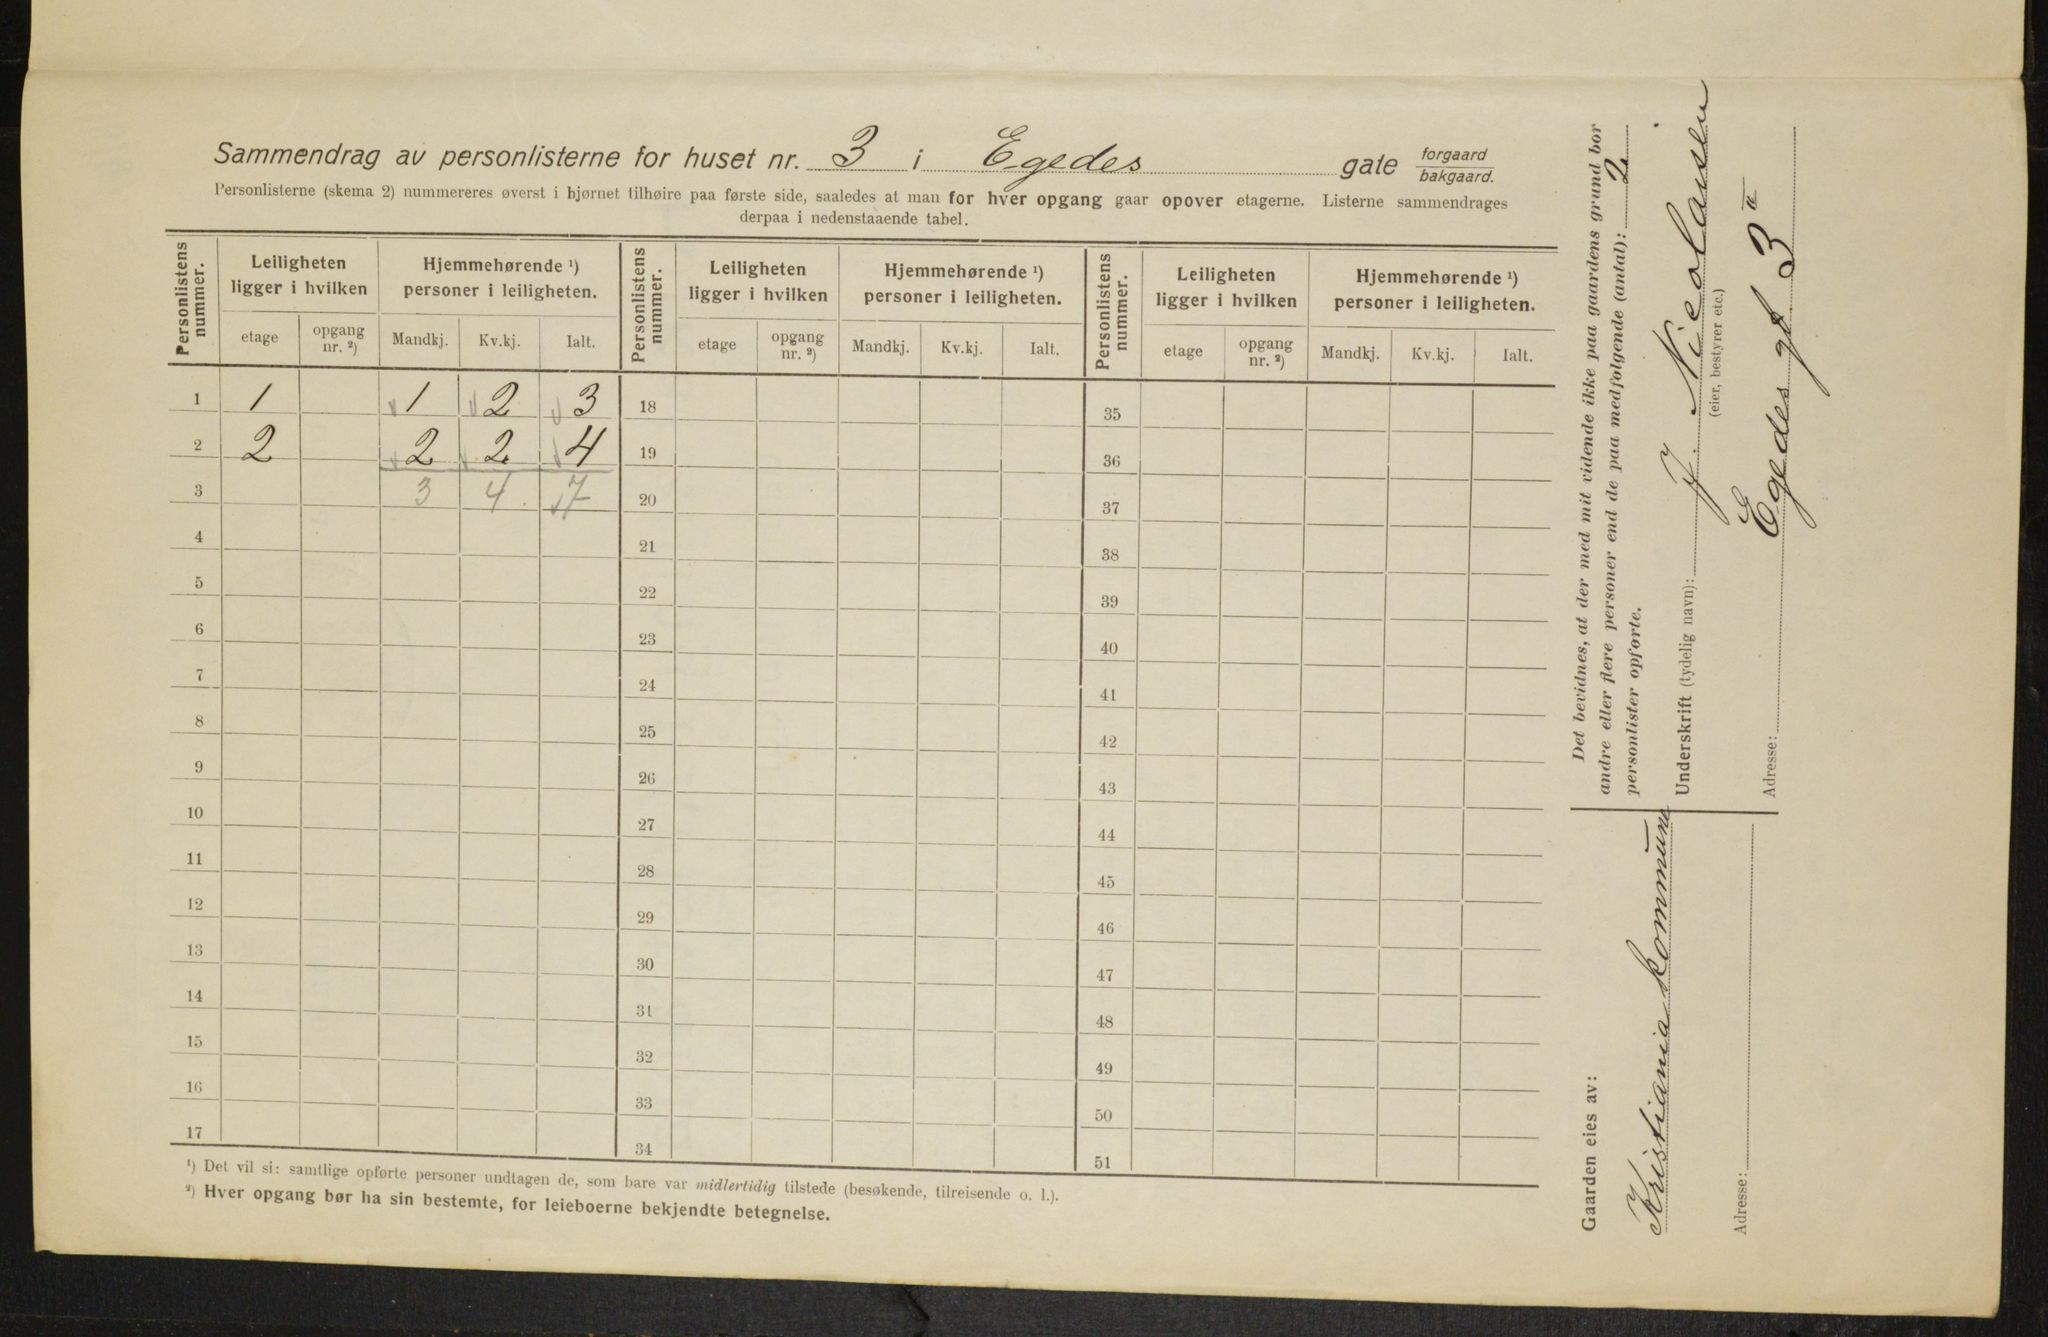 Sammendrag av personlisterne for huset nr. 3 i Egedes gate forgaard
bakgaard.
Personlisterne (skema 2) nummereres øverst i hjørnet tilhøire paa første side, saaledes at man for hver opgang gaar opover etagerne. Listerne sammendrages
derpaa i nedenstaaende tabel.
Personlistens nummer. Leiligheten ligger i hvilken Hjemmehørende ¹) personer i leiligheten. Personlistens nummer. Leiligheten ligger i hvilken Hjemmehørende ¹) personer i leiligheten. Personlistens nummer. Leiligheten ligger i hvilken Hjemmehørende ¹) personer i leiligheten.
etage opgang nr. ²) Mandkj. Kv.kj. Ialt. etage opgang nr. ²) Mandkj. Kv.kj. Ialt. etage opgang nr. ²) Mandkj. Kv.kj. Ialt.
1 1 1 2 3 18 35
2 2 2 2 4 19 36
3 3 4 7 20 37
4 21 38
5 22 39
6 23 40
7 24 41
8 25 42
9 26 43
10 27 44
11 28 45
12 29 46
13 30 47
14 31 48
15 32 49
16 33 50
17 34 51
¹) Det vil si: samtlige opførte personer undtagen de, som bare var midlertidig tilstede (besøkende, tilreisende o. l.).
²) Hver opgang bør ha sin bestemte, for leieboerne bekjendte betegnelse.
Det bevidnes, at der med mit vidende ikke paa gaardens grund bor
andre eller flere personer end de paa medfølgende (antal): 2
personlister opførte.
Underskrift (tydelig navn): J. Nicolaisen
(eier, bestyrer etc.)
Egedes gt 3
Adresse:
Gaarden eies av:
Kristiania kommune
Adresse: